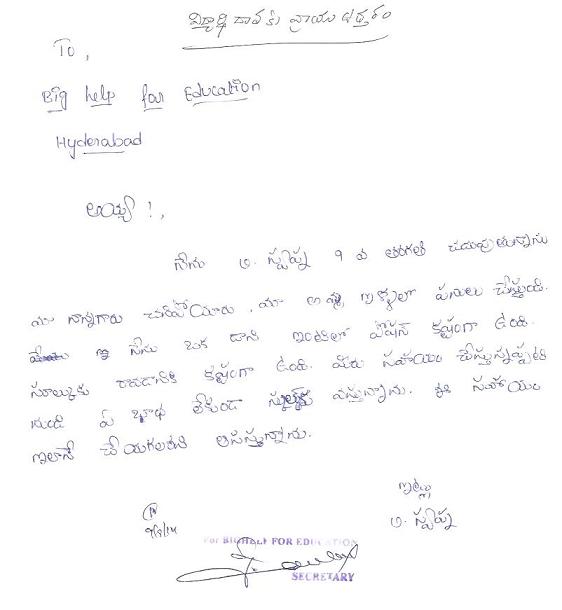 విద్యార్థి రావకు వ్రాయు ఉత్తరం
To,
Big help for Education
Hyderabad
అయ్యా !,
నేను అ. స్వప్న 9 వ తరగతి చదువుతున్నాను
మా నాన్నగారు చనిపోయారు. మా అమ్మ ఇళ్ళలో పనులు చేస్తుంది.
నేను ఒక దాని ఇంటిలో పోషన కష్టంగా ఉంది.
స్కూల్కుకు రావడానికి కష్టంగా ఉంది. మీరు సహాయం చేస్తున్నప్పటి
నుండి ఏ బాధ లేకుండా స్కూల్కు వస్తున్నాను. ఈ సహాయం
ఇలానే చేయగలరని ఆశిస్తున్నాను.
ఇట్లు
అ. స్వప్న
For BIGHELP FOR EDUCATION
SECRETARY